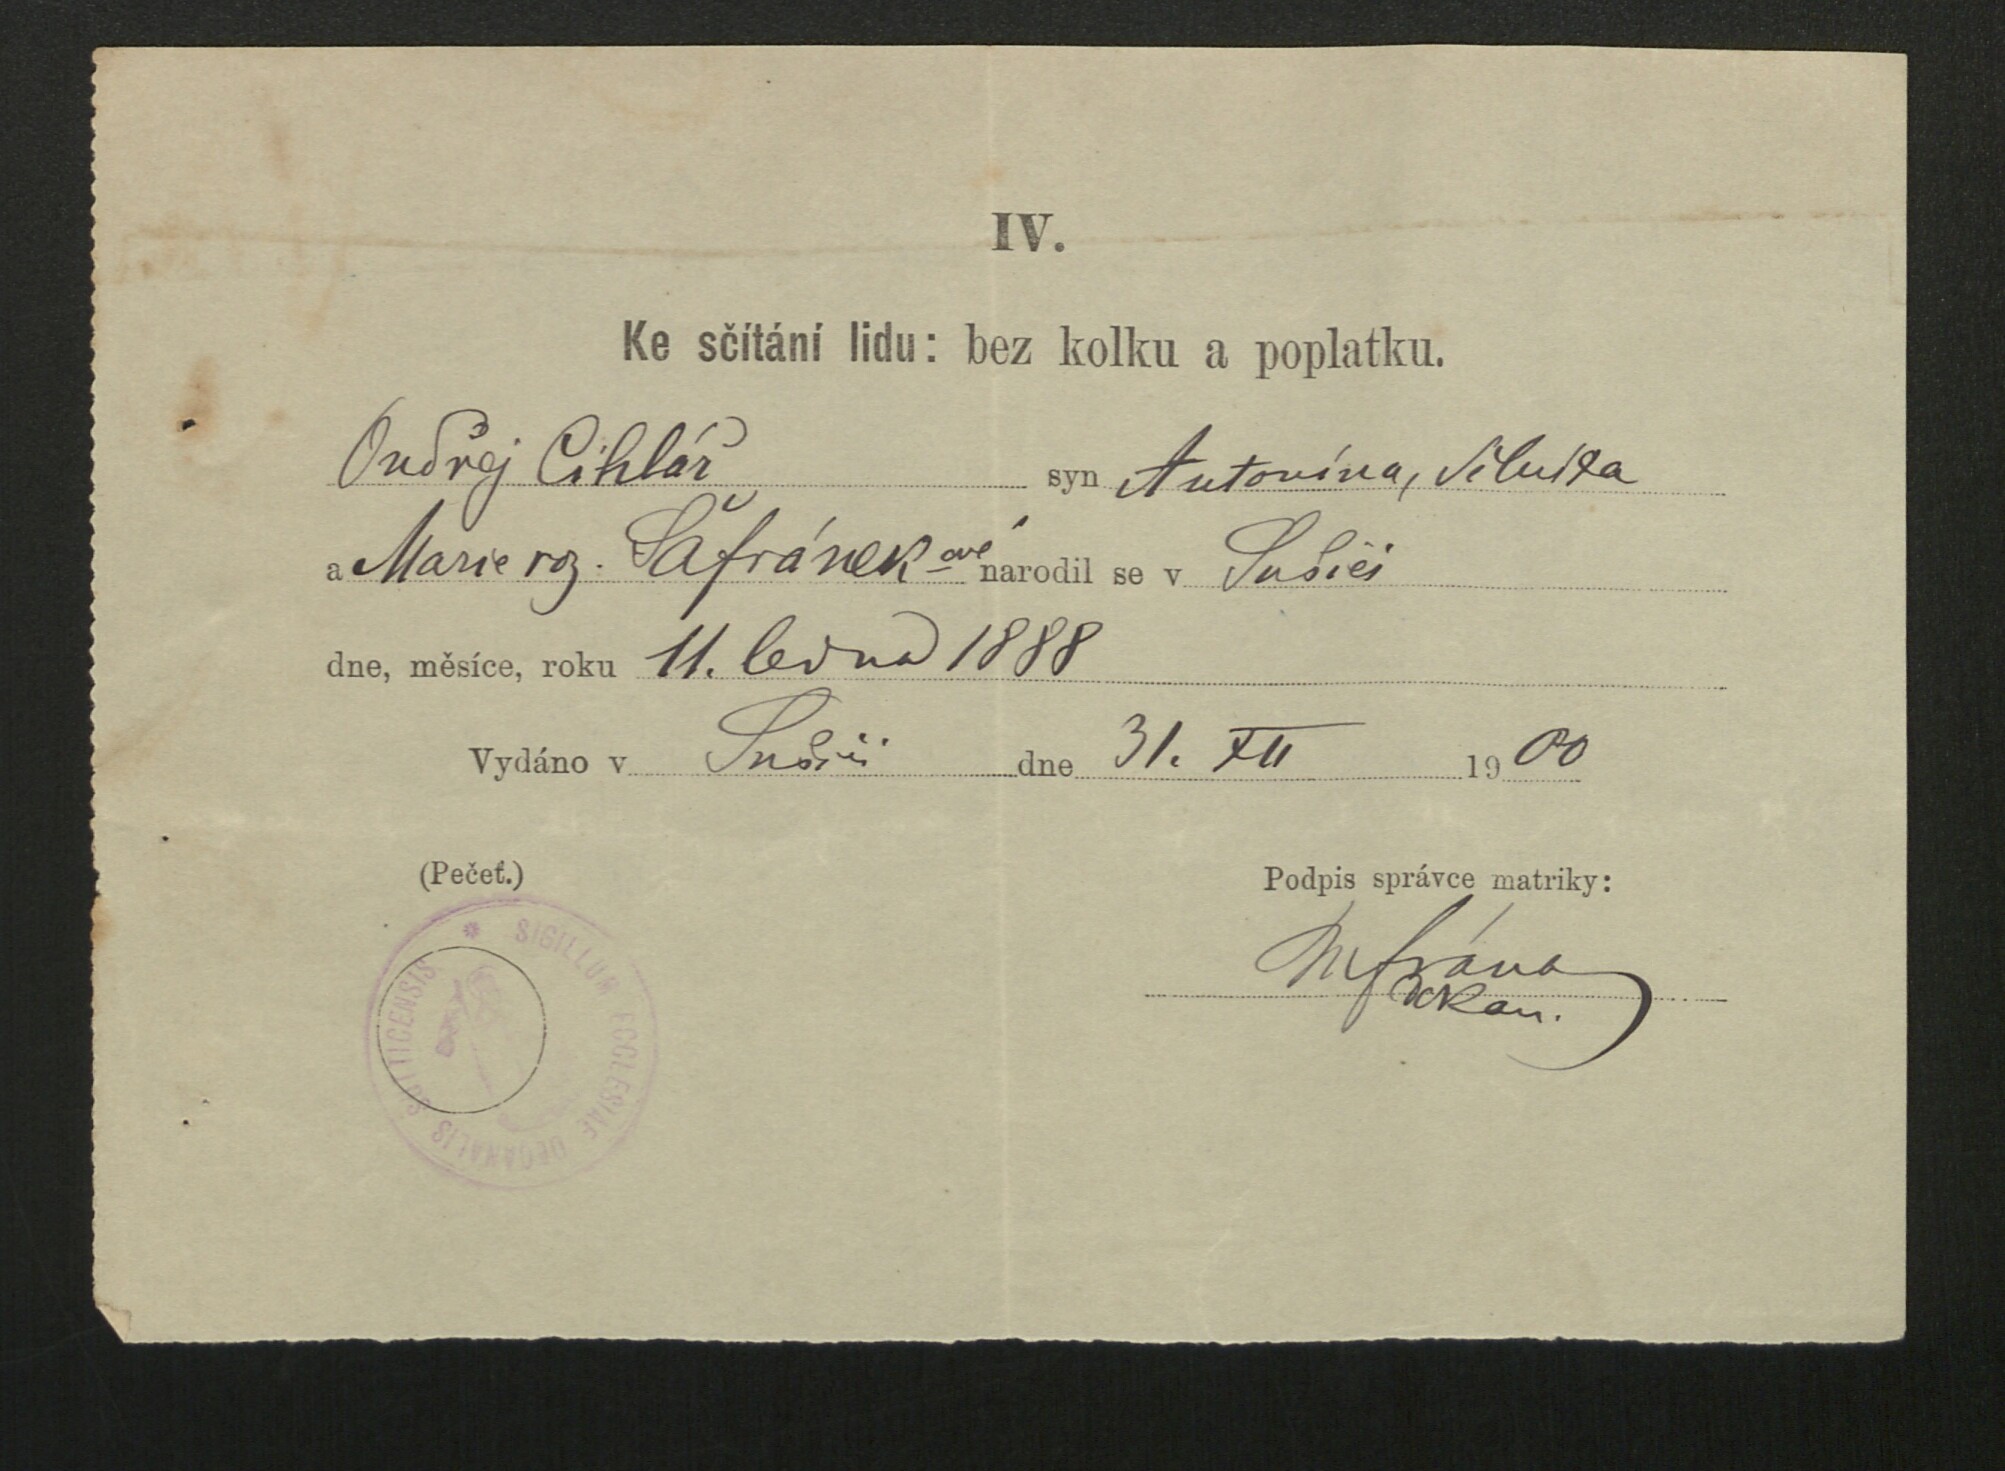 IV.
Ke sčítání lidu: bez kolku a poplatku.
Ondřej Cihlář syn Antonína,
a Marie roz. Šafránekové narodil se v Sušici
dne, měsíce, roku 11. ledna 1888
Vydáno v Sušici dne 31. XII 1900
(Pečeť.) Podpis správce matriky:
děkan.
* SIGILLUM ECCLESIAE DECANALIS SUTTICENSIS